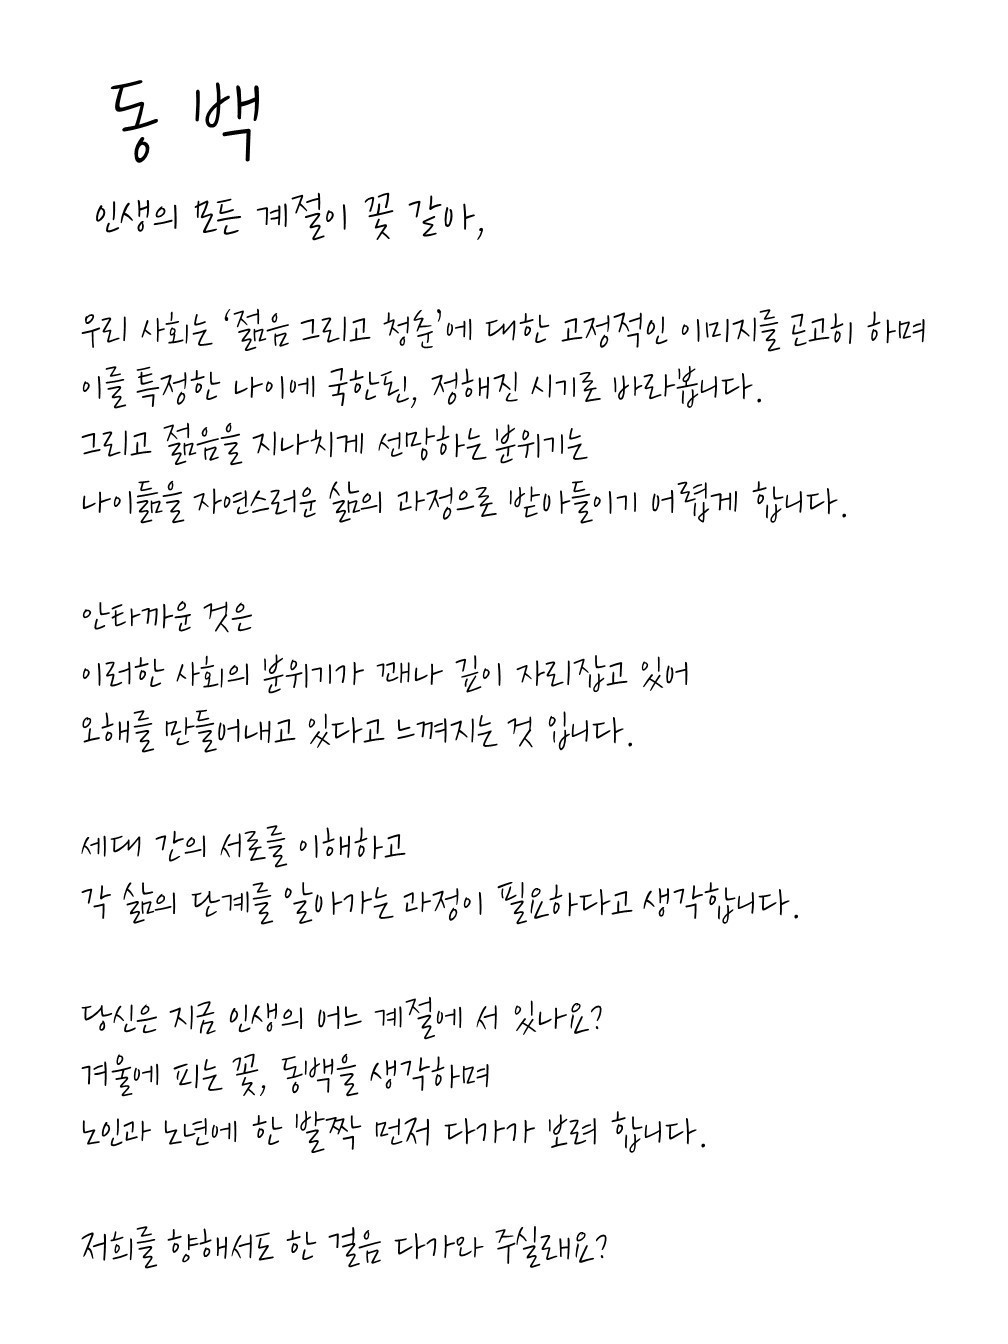 동백
인생의 모든 계절이 꽃 같아,
우리 사회는 ‘젊음 그리고 청춘’에 대한 고정적인 이미지를 곤고히 하며
이를 특정한 나이에 국한된, 정해진 시기로 바라봅니다.
그리고 젊음을 지나치게 선망하는 분위기는
나이듦을 자연스러운 삶의 과정으로 받아들이기 어렵게 합니다.
안타까운 것은
이러한 사회의 분위기가 꽤나 깊이 자리잡고 있어
오해를 만들어내고 있다고 느껴지는 것 입니다.
세대 간의 서로를 이해하고
각 삶의 단계를 알아가는 과정이 필요하다고 생각합니다.
당신은 지금 인생의 어느 계절에 서 있나요?
겨울에 피는 꽃, 동백을 생각하며
노인과 노년에 한 발짝 먼저 다가가 보려 합니다.
저희를 향해서도 한 걸음 다가와 주실래요?